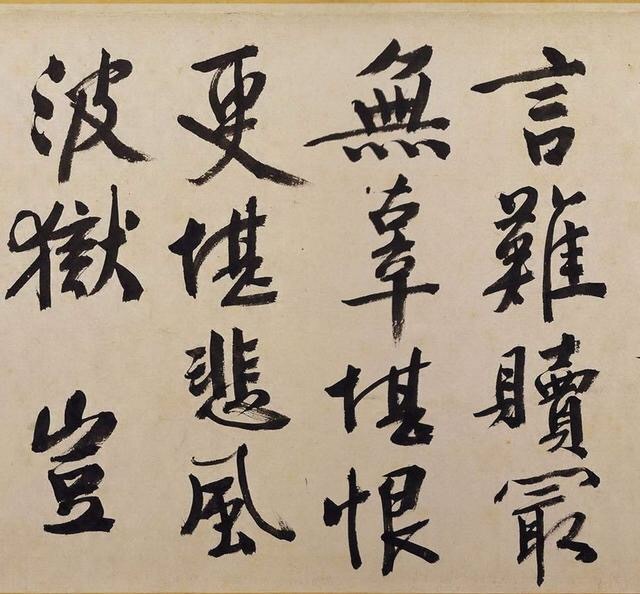 言難贖冣
無辜堪恨
更堪悲風
波獄 豈